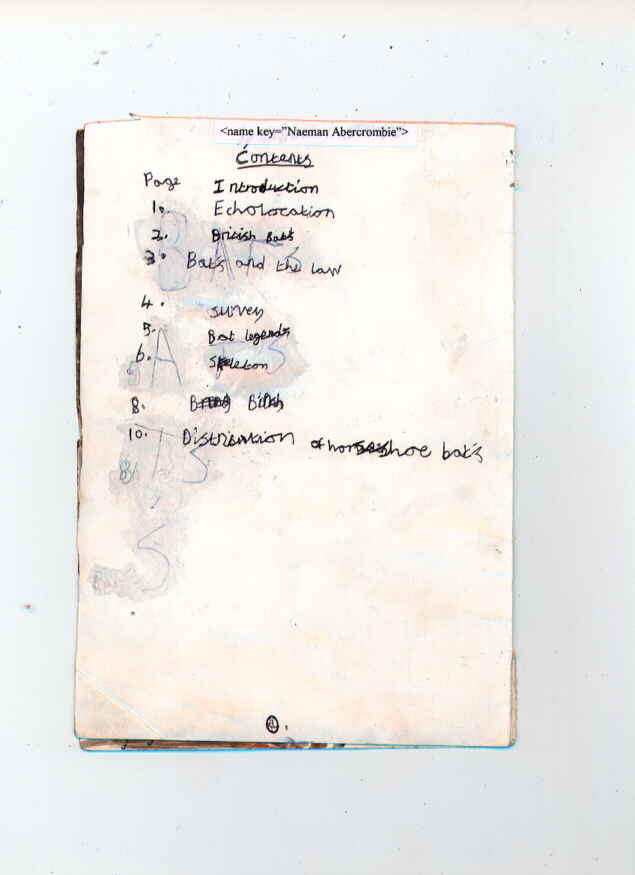 <name key="Naeman Abercrombie">
Contents
Page Introduction
1. Echolocation
2. British Bat's
3. Bat's and the law
4. survey
5. Bat legends
6. Skeleton
8. Birth
10. Distribution of horseshoe bat's
BATS
A
T
S